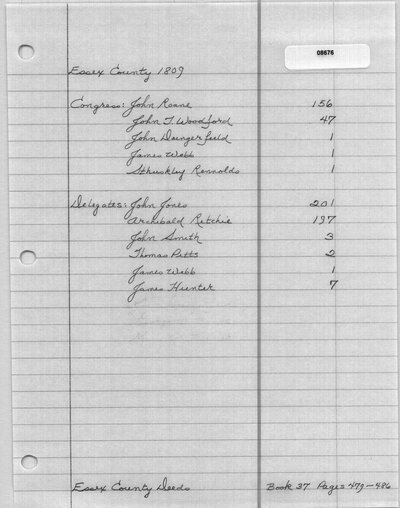 08676
Essex County 1809
Congress: John Roane 156
John T. Woodford 47
John Daingerfield 1
James Webb 1
Sthuskley Rennolds 1
Delegates: John Jones 201
Archibald Ritchie 197
John Smith 3
Thomas Pitts 2
James Webb 1
James Hunter 7
Essex County Deeds Book 37 Pages 479-486